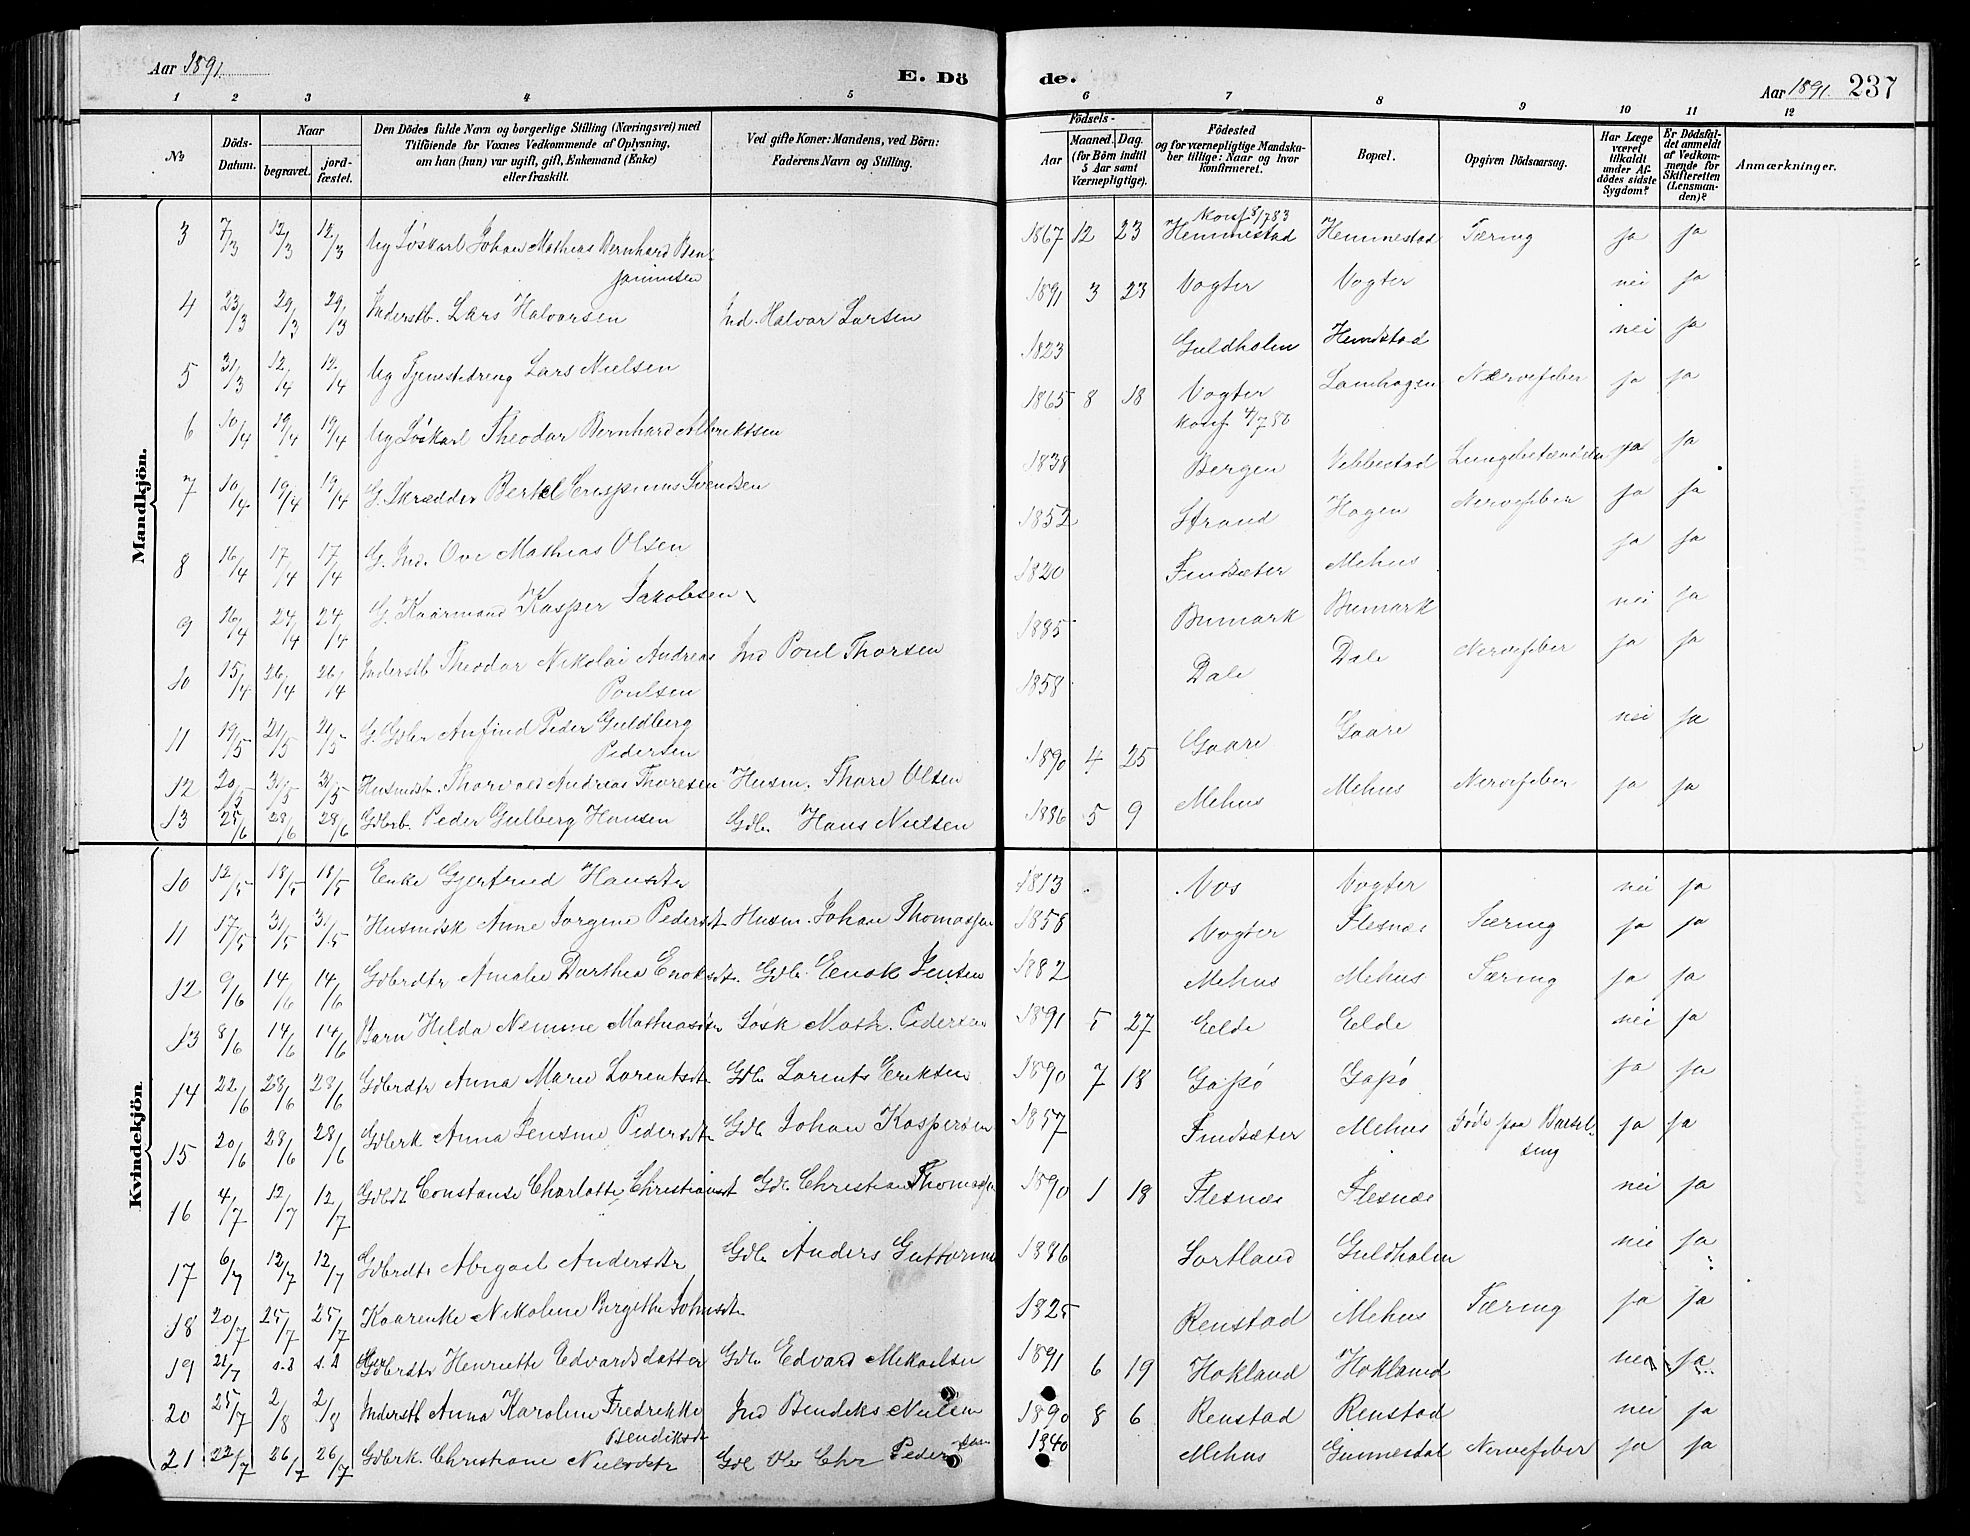 Aar 1891.
E. Dö
de.
Aar 1891. 237
1 2 3 4 5 6 7 8 9 10 11 12
No
Döds-Datum.
Naar
begravet.
jord-fæstet.
Den Dödes fulde Navn og borgerlige Stilling (Næringsvei) med
Tilföiende for Voxnes Vedkommende af Oplysning,
om han (hun) var ugift, gift, Enkemand (Enke)
eller fraskilt.
Ved gifte Koner: Mandens, ved Börn:
Faderens Navn og Stilling.
Födsels-
Aar
Maaned. Dag.
(for Börn indtil
5 Aar samt
Værnepligtige).
Födested
og for værnepligtige Mandska-
ber tillige: Naar og hvor
Konfirmeret.
Bopæl.
Opgiven Dödsaarsag.
Har Læge
været
tilkaldt
under Af-
dödes sidste
Sygdom?
Er Dödsfal-
det anmeldt
af Vedkom-
mende for
Skifteretten
(Lensman-
den)?
Anmærkninger.
Mandkjön.
3 7/3 12/3 12/3 Ug Løskarl Johan Mathias Bernhard Ben-
jaminsen 1867 12 23 Konf 8/7 83 Hemmestad Hemmestad Tæring ja ja
4 23/3 29/3 29/3 Inderstb. Lars Halvorsen Ind. Halvor Larsen 1891 3 23 Vogter Vogter nei ja
5 31/3 12/4 12/4 Ug Tjenestedreng Lars Nielsen 1823 Guldholm Hemdstad nei ja
6 10/4 19/4 19/4 Ug Løskarl Theodor Bernhard Albriktsen 1865 8 18 Vogter Konf 4/7 80 Lamhagen Nervefeber ja ja
7 10/4 19/4 19/4 G. Skrædder Bertel Crispinus Svendsen 1838 Bergen Vebbestad Lungebetændelse ja ja
8 16/4 17/4 17/4 G. Ind. Ove Mathias Olsen 1852 Strand Hagen Nervefeber ja ja
9 16/4 24/4 24/4 G. Kaarmand Kasper Jakobsen 1820 Findsæter Mehus ja ja
10 15/4 26/4 26/4 Inderstb Theodor Nikolai Andreas
Poulsen Ind Poul Thorsen 1885 Bumark Bumark nei ja
11 19/5 21/5 21/5 G. Gdbr Anfind Peder Guldberg
Pedersen 1858 Dale Dale Nervefeber ja ja
12 20/5 31/5 31/5 Husmdst. Thorvald Andreas Thoresen Husm. Thore Olsen 1890 4 25 Gaare Gaare nei ja
13 25/6 28/6 28/6 Gdbrb. Peder Gulberg Hansen Gdbr Hans Nielsen 1886 5 9 Mehus Mehus Nervefeber ja ja
Kvindekjön.
10 12/5 18/5 18/5 Enke Gjertrud Hansdtr 1813 Vos Vogter nei ja
11 17/5 31/5 31/5 Husmdsk Anne Jorgine Pedersdt Husm. Johan Thomassen 1858 Vogter Flesnæs Tæring ja ja
12 9/6 14/6 14/6 Gdbrdtr Amalie Dorthea Enoksdt. Gdbr. Enok Jensen 1882 Mehus Mehus Tæring ja ja
13 8/6 14/6 14/6 Barn Hilda Nemine Mathiasdtr Løsk Math. Pedersen 1891 5 27 Elde Elde nei ja
14 22/6 28/6 28/6 Gdbrdtr Anna Marie Lorentsdt Gdbr Lorents Eriksen 1890 7 18 Gapø Gapø ja ja
15 20/6 28/6 28/6 Gdbrk Anna Jensine Pedersdtr Gdbr Johan Kaspersen 1857 Findsæter Mehus Døde paa Barsel-
seng ja ja
16 4/7 12/7 12/7 Gdbdt Constanse Charlotte Christiansdt Gdbr. Christian Thomassen 1890 1 18 Flesnæs Flesnæs nei ja
17 6/7 12/7 12/7 Gdbrdtr Abigael Andersdtr Gdbr Anders Guttorms 1886 Sortland Guldholm nei ja
18 20/7 25/7 25/7 Kaarenke Nikoline Bergithe Johnsdtr 1825 Renstad Mehus Tæring ja ja
19 21/7 s. d s. d Gdbrdtr Henriette Edvardsdatter Gdbr Edvard Mikaelsen 1891 6 19 Hokland Hokland nei ja
20 25/7 2/8 2/8 Inderstb Anna Karoline Fredrikke
Bendiksdt Ind Bendiks Nielsen 1890 8 6 Renstad Renstad nei ja
21 22/7 26/7 26/7 Gdbrk Christiane Nielsdtr Gdbr Chr Pedersen 1840 Mehus Gunnestad Nervefeber ja ja